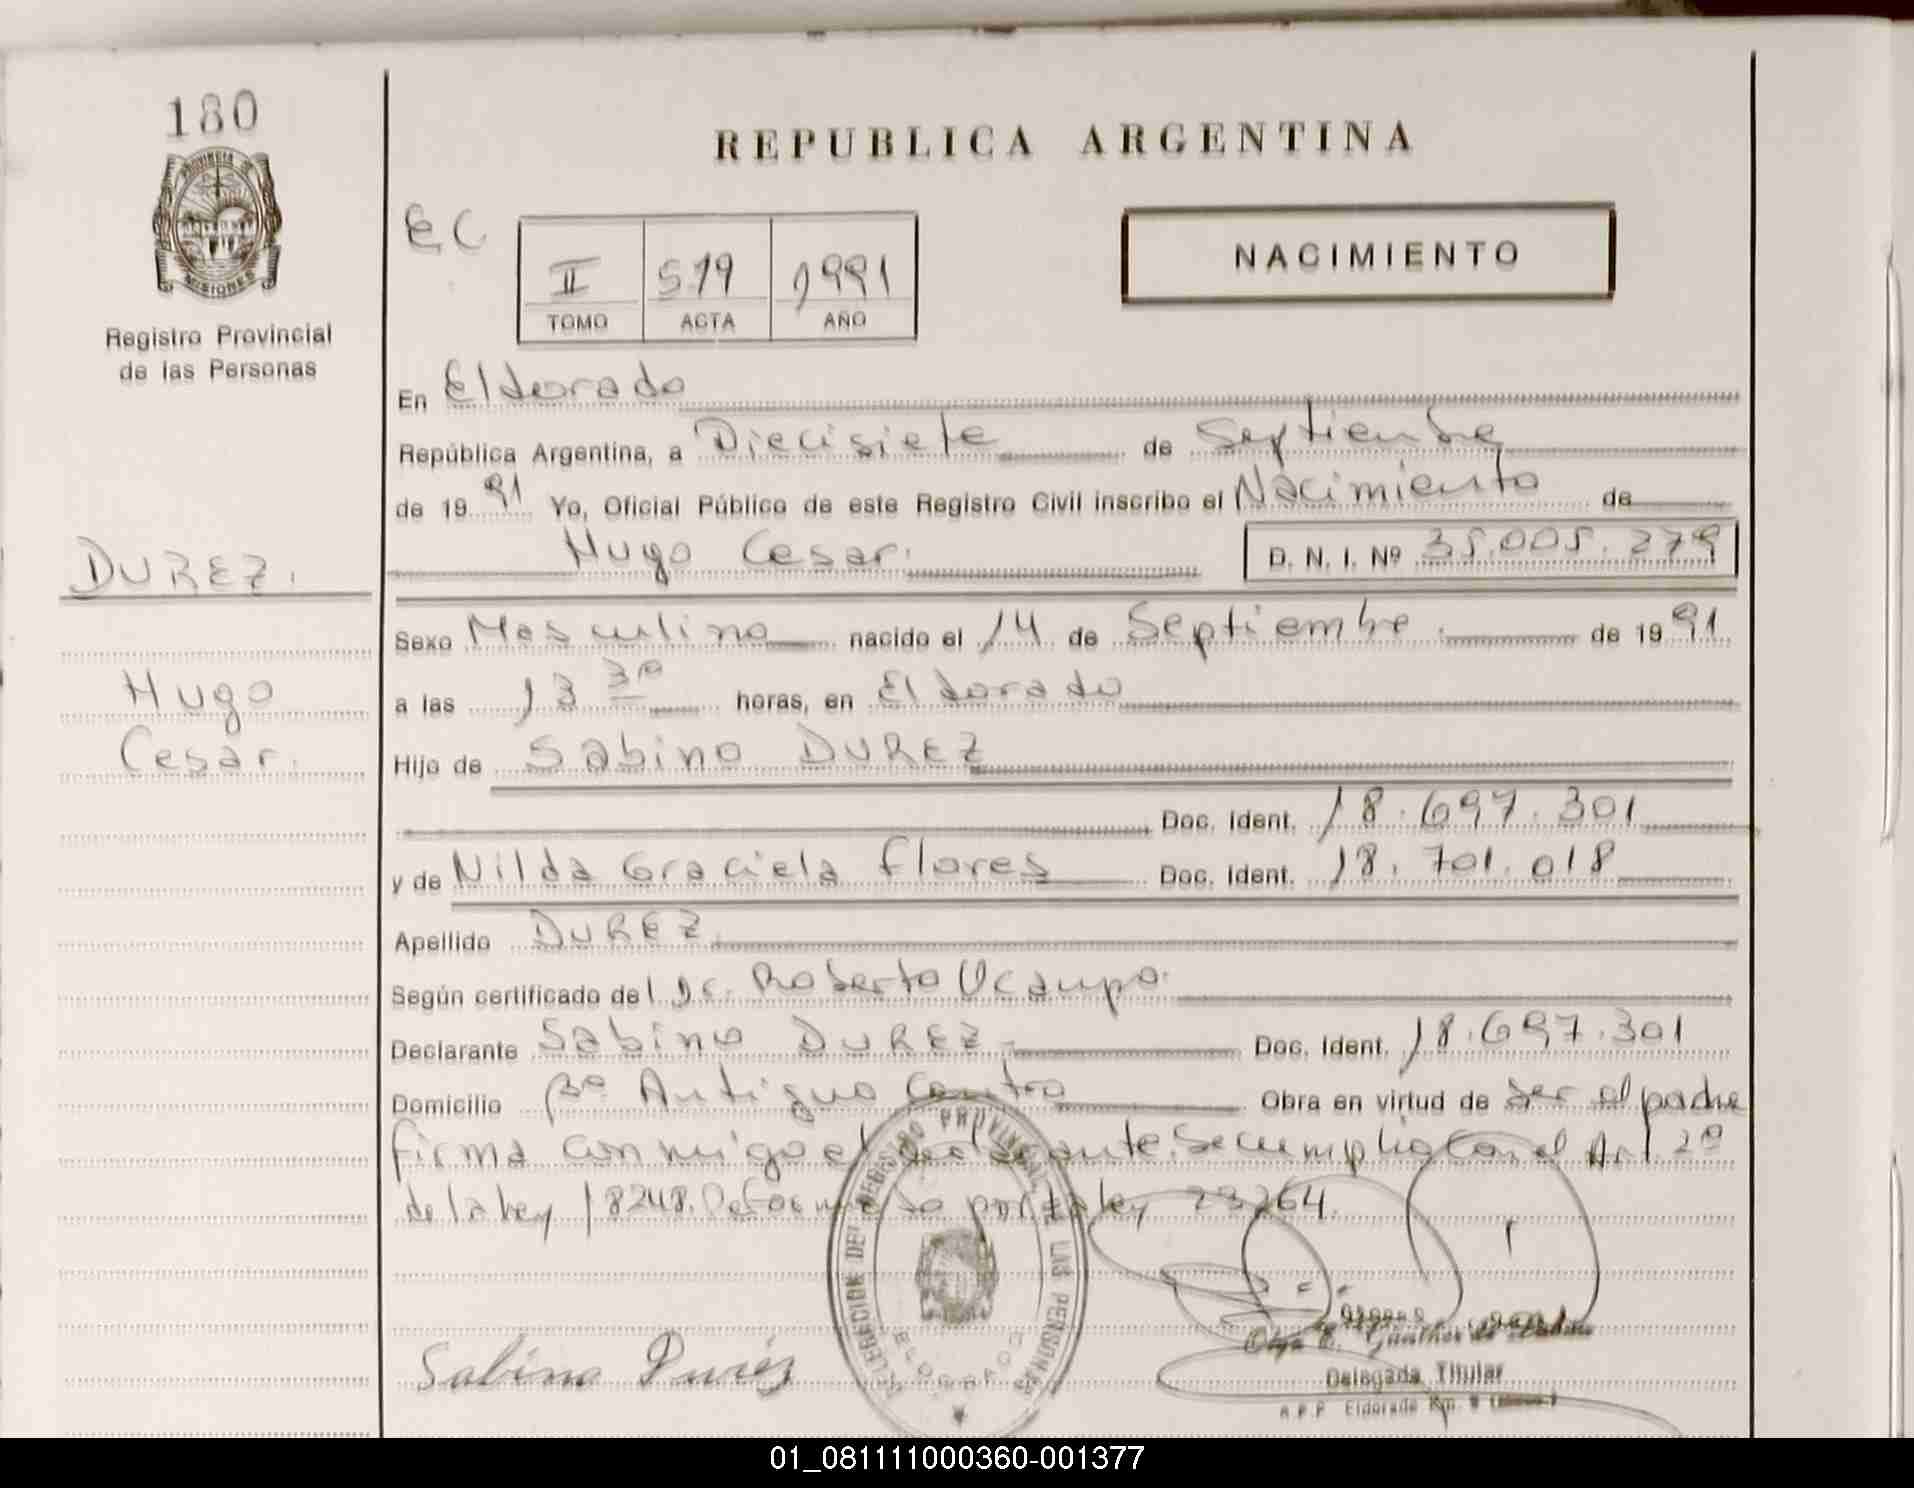 180
PROVINCIA DE
MISIONES
Registro Provincial
de las Personas
REPUBLICA ARGENTINA
EC
II 579 1991
TOMO ACTA AÑO
NACIMIENTO
En Eldorado
República Argentina, a Diecisiete de Septiembre
de 1991 Yo, Oficial Público de este Registro Civil inscribo el Nacimiento de
Hugo Cesar. D. N. I. Nº 35.005.279
DUREZ.
Sexo Masculino nacido el 14 de Septiembre. de 1991
Hugo
Cesar.
a las 13 30 horas, en Eldorado
Hijo de Sabino DUREZ
Doc. Ident. 18.697.301
y de Nilda Graciela Flores Doc. Ident. 18.701.018
Apellido DUREZ
Según certificado del Dr. Roberto Ocampo.
Declarante Sabino DUREZ. Doc. Ident. 18.697.301
Domicilio Bº Antiguo Centro Obra en virtud de ser el padre
firma conmigo el declarante. Se cumplio con el Art 2º
de la Ley 18248. Reformado por la Ley 23264.
DELEGACION DEL REGISTRO PROVINCIAL DE LAS PERSONAS
ELDORADO
Sabino Durez
Olga E. Günther de
Delegada Titular
R.P.P. Eldorado Km. 9
01_081111000360-001377